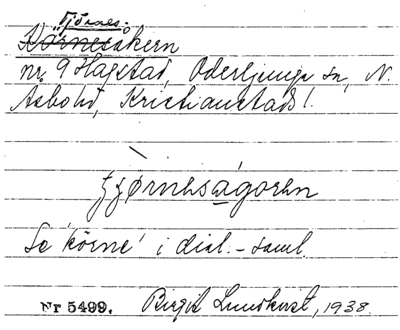 "Tjörnes-"
Körnesåkern
nr. 9 Hagstad, Oderljunga sn, N.
Åsbo hd, Kristianstads l.
tjørnesågoren
Se 'körne' i dial.-saml.
Nr 5499. Birgit Lundkvist, 1938